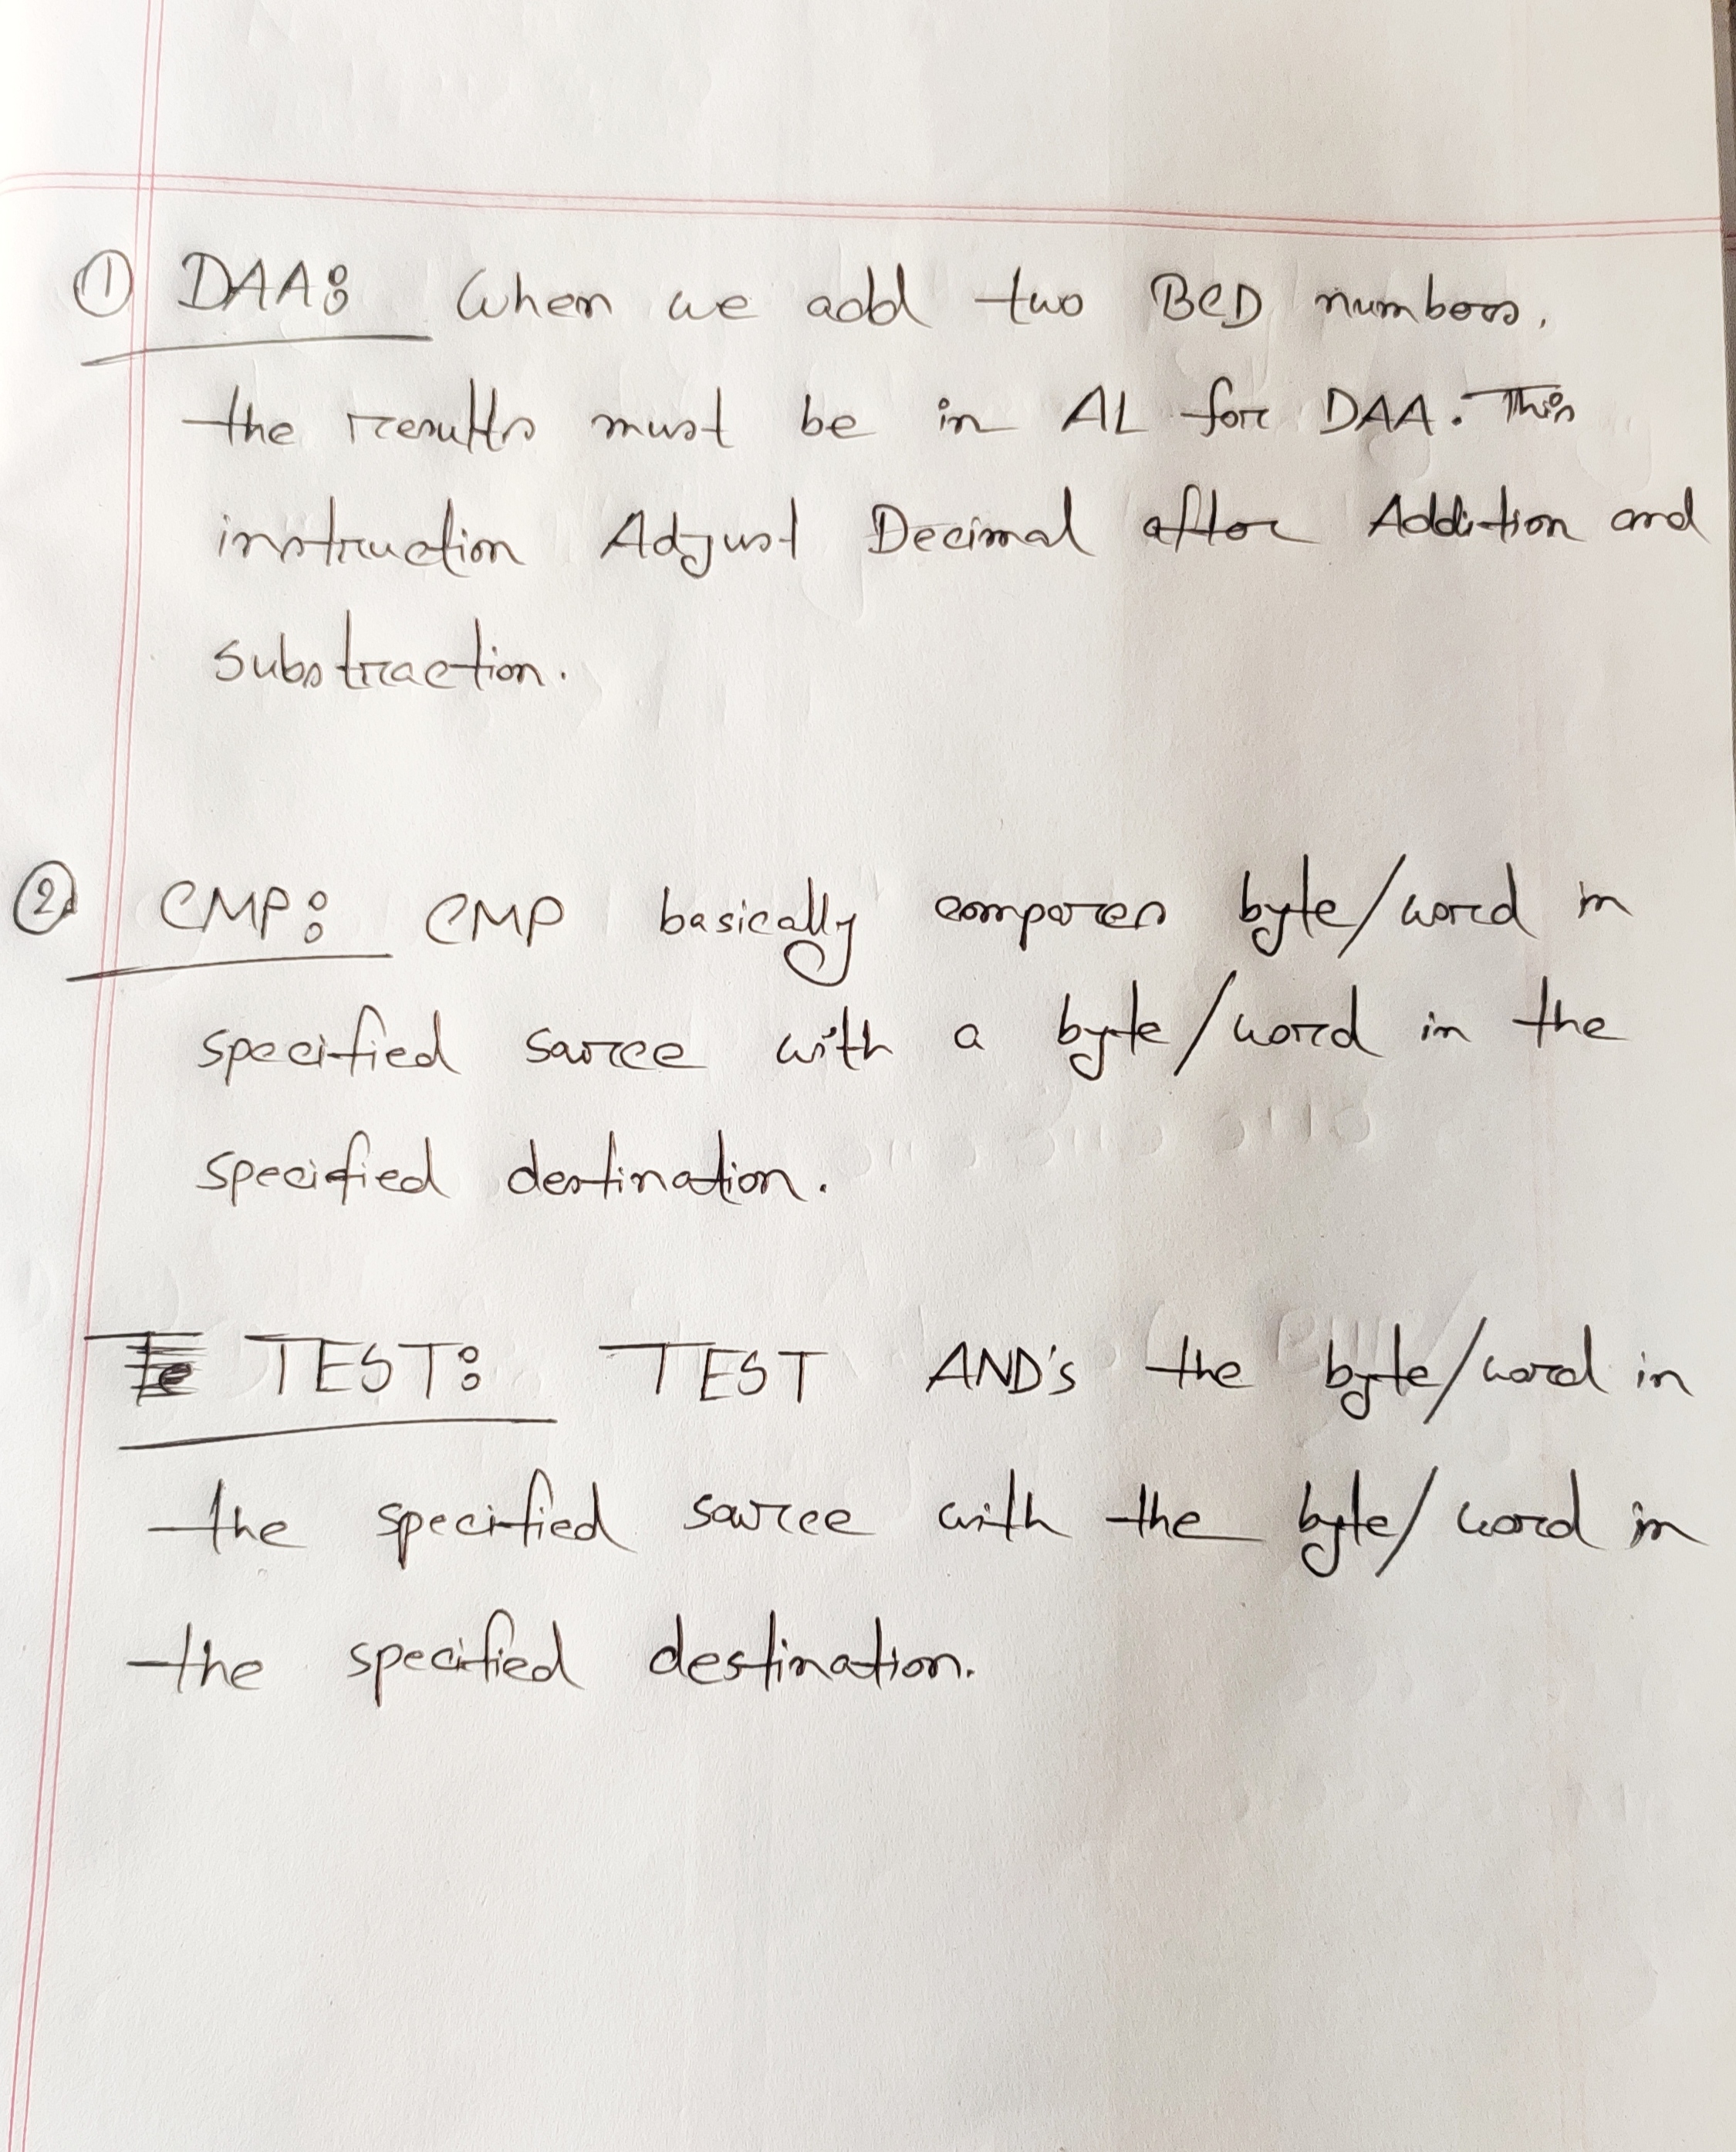 ① DAA: When we add two BCD numbers,
the results must be in AL for DAA. This
instruction Adjust Decimal after Addition and
substraction.
② CMP: CMP basically compares byte/word in
specified source with a byte/word in the
specified destination.
TEST: TEST AND's the byte/word in
the specified source with the byte/word in
the specified destination.